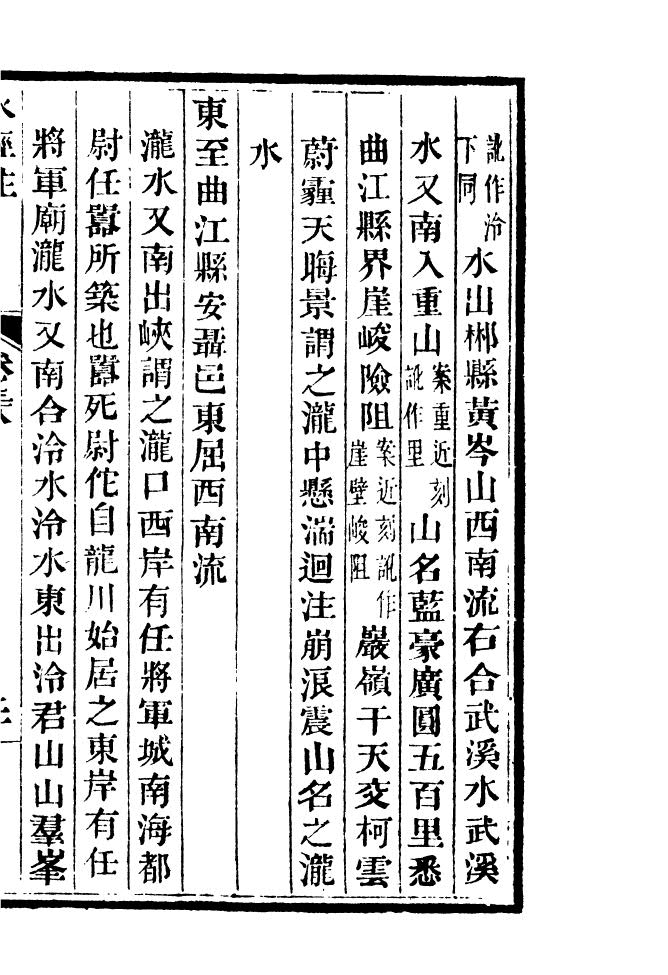 訛作泠下同水出郴縣黃岑山西南流右合武溪水武溪
水又南入重山案重近刻訛作里山名藍豪廣圓五百里悉
曲江縣界崖峻險阻案近刻訛作崖壁峻阻巖嶺干天交柯雲
蔚霾天晦景謂之瀧中懸湍迴注崩浪震山名之瀧
水
東至曲江縣安聶邑東屈西南流
瀧水又南出峽謂之瀧口西岸有任將軍城南海都
尉任囂所築也囂死尉佗自龍川始居之東岸有任
將軍廟瀧水又南合泠水泠水東出泠君山山羣峯
水經注